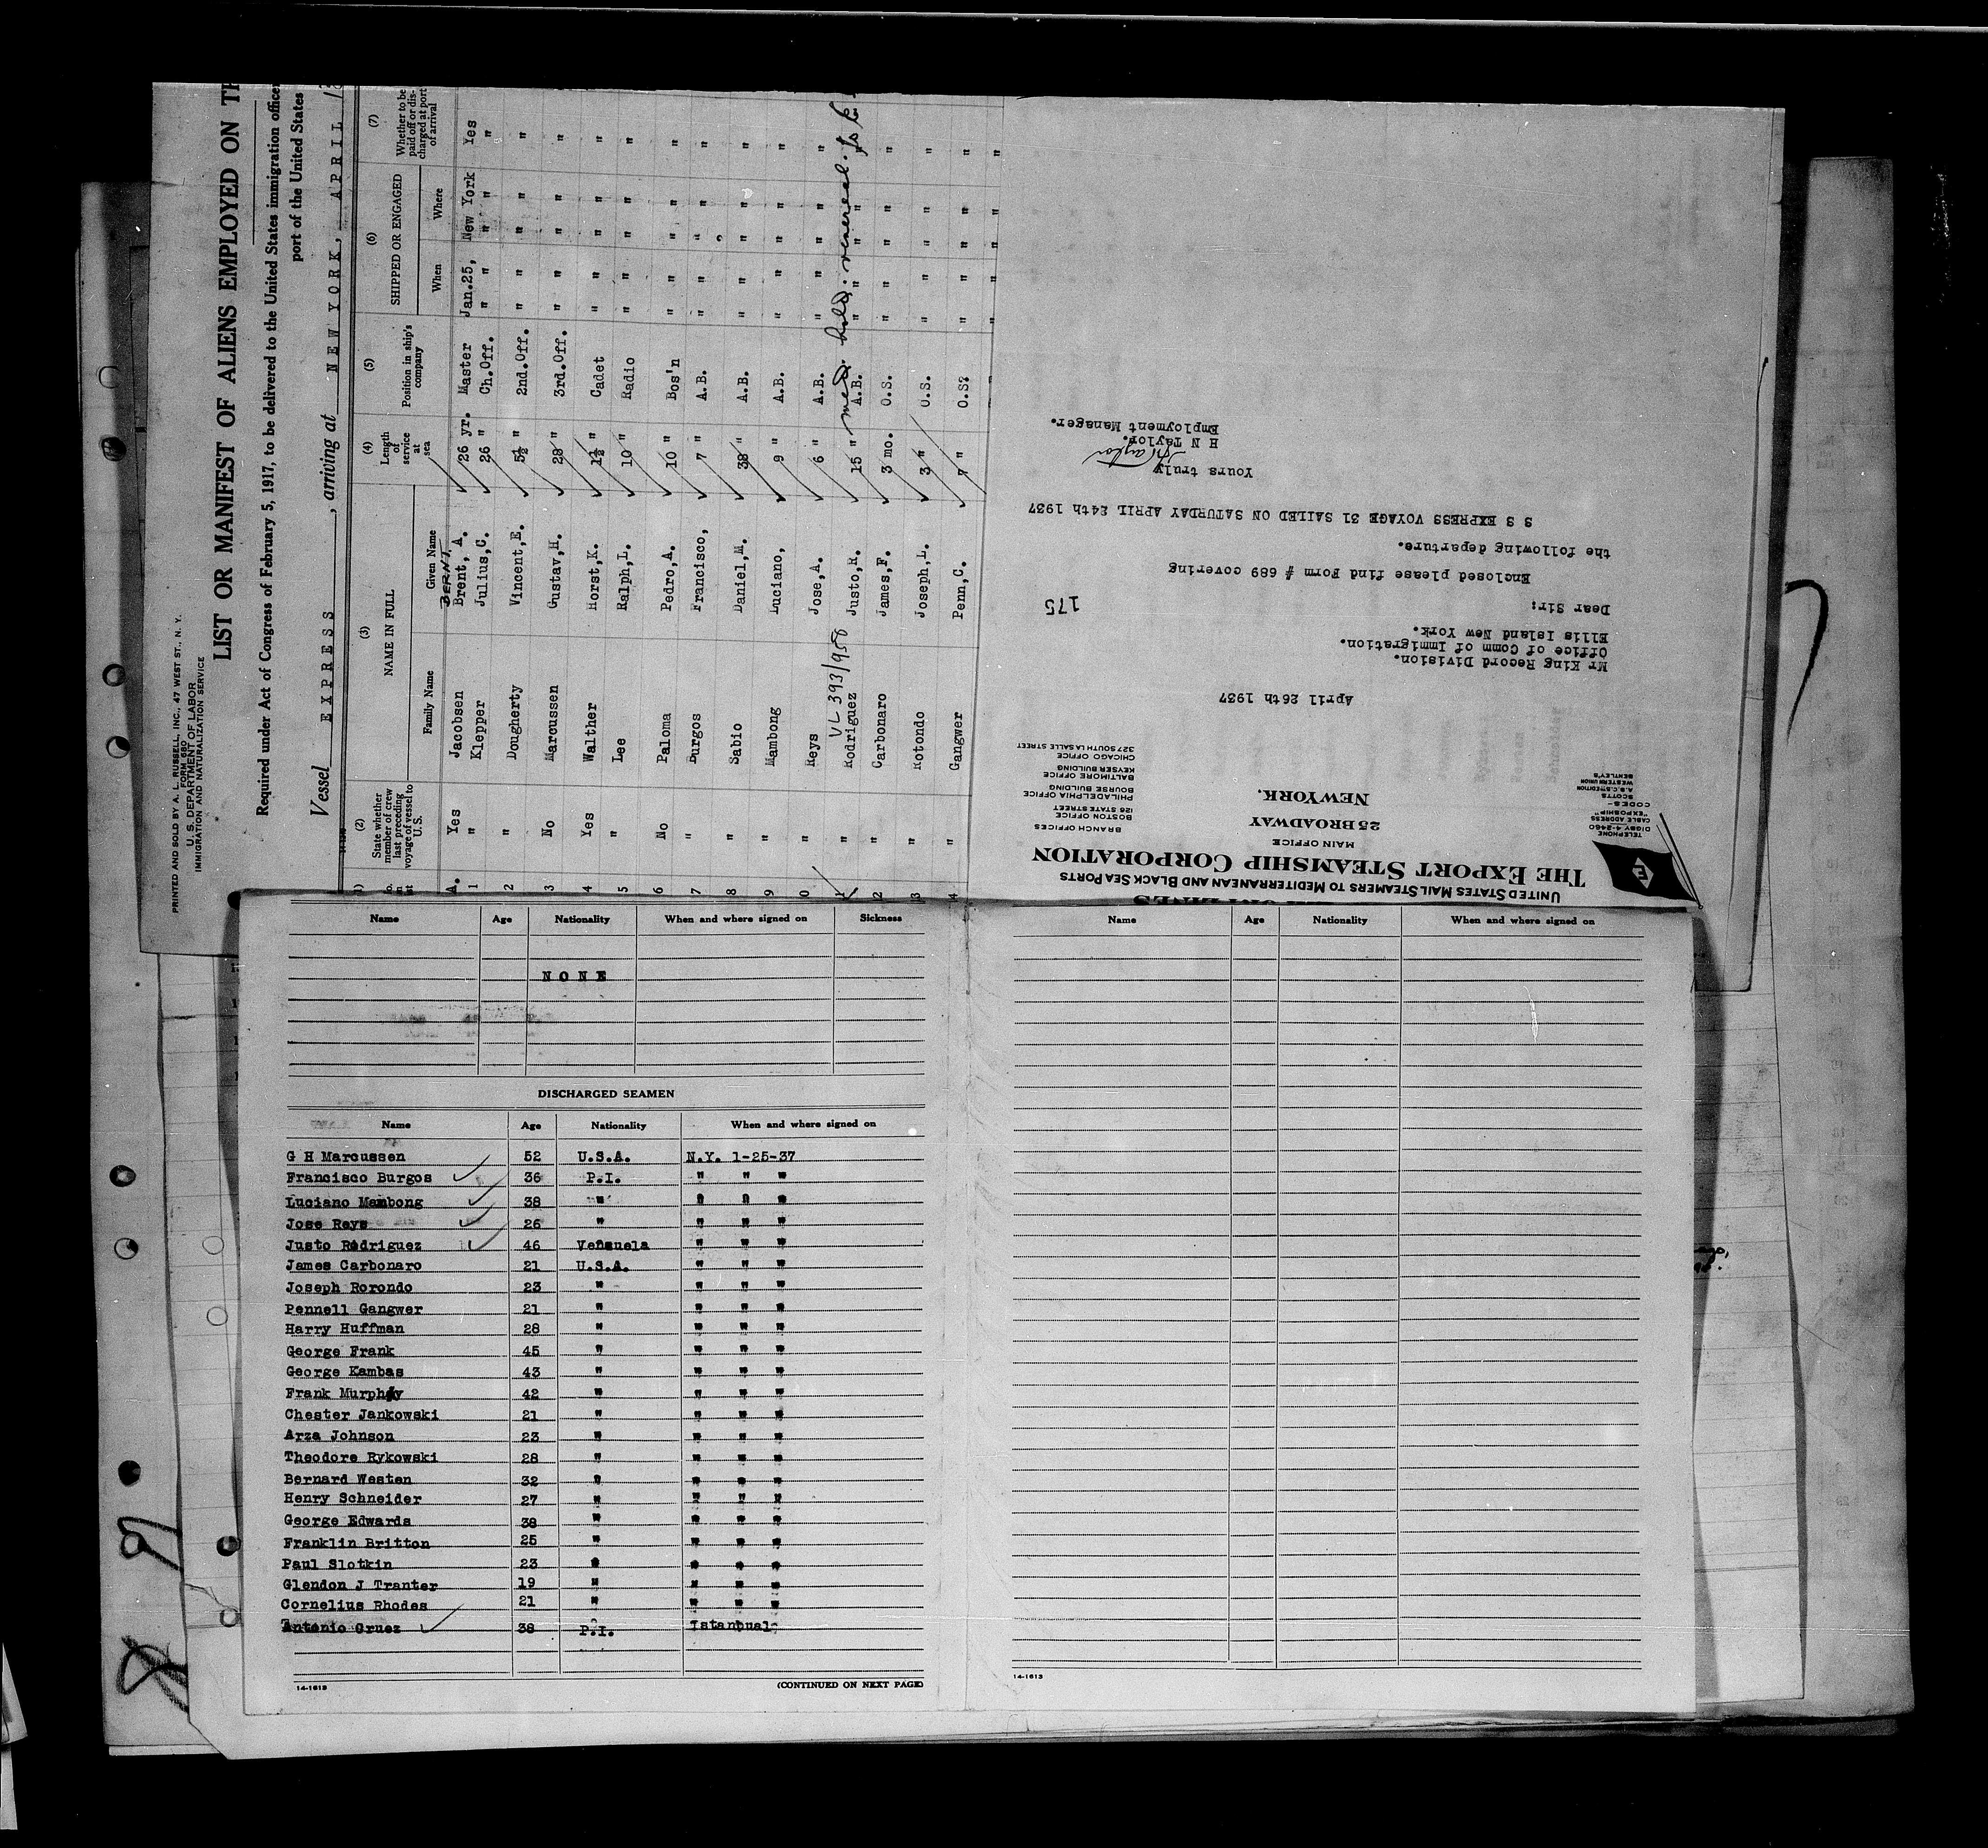 PRINTED AND SOLD BY A. L. RUSSELL, INC., 47 WEST ST., N. Y.
FORM 680
U. S. DEPARTMENT OF LABOR
IMMIGRATION AND NATURALIZATION SERVICE
LIST OR MANIFEST OF ALIENS EMPLOYED ON
Required under Act of Congress of February 5, 1917, to be delivered to the United States immigration
port of the United States
Vessel EXPRESS, arriving at NEW YORK, APRIL
(2) (3) (4) (5) (6) (7)
State whether member of crew last preceding voyage of vessel to U.S.
NAME IN FULL
Family Name Given Name
Length of service at sea
Position in ship's company
SHIPPED OR ENGAGED
When Where
Whether to be paid off or discharged at port of arrival
BERNT
A. Yes Jacobsen Brent, A. 26 yr. Master Jan.25, New York Yes
1 " Klepper Julius,C. 26 " Ch.Off. " " " "
2 " Dougherty Vincent,E. 5½ " 2nd.Off. " " " " "
3 No Marcussen Gustav,H. 28 " 3rd.Off. " " " " "
4 Yes Walther Horst,K. 1½ " Cadet " " " " "
5 " Lee Ralph,L. 10 " Radio " " " " "
6 No Paloma Pedro,A. 10 " Bos'n " " " " "
7 " Burgos Francisco, 7 " A.B. " " " " "
8 " Sabio Daniel,M. 38 " A.B. " " " " "
9 " Mambong Luciano, 9 " A.B. " " " " "
0 " Reys Jose,A. 6 " A.B. " " " " "
VL 393/958 med. hold. venereal.
1 " Rodriguez Justo,R. 15 " A.B. " " " " "
12 " Carbonaro James,F. 3 mo. O.S. " " " " "
13 " Rotondo Joseph,L. 3 " O.S. " " " " "
14 " Gangwer Penn,C. 7 " O.S? " " " " "
UNITED STATES MAIL STEAMERS TO MEDITERRANEAN AND BLACK SEA PORTS
THE EXPORT STEAMSHIP CORPORATION
MAIN OFFICE
25 BROADWAY
NEW YORK.
TELEPHONE
DIGBY 4-2460
CABLE ADDRESS
"EXPOSHIP"
-CODES-
SCOTTS
A.B.C. 5TH EDITION
WESTERN UNION
BENTLEY'S
E
BRANCH OFFICES
BOSTON OFFICE
126 STATE STREET
PHILADELPHIA OFFICE
BOURSE BUILDING
BALTIMORE OFFICE
KEYSER BUILDING
CHICAGO OFFICE
327 SOUTH LA SALLE STREET
April 26th 1937
Mr King Record Division.
Office of Comm of Immigration.
Ellis Island New York.
Dear Sir: 175
Enclosed please find Form # 689 covering
the following departure.
S S EXPRESS VOYAGE 31 SAILED ON SATURDAY APRIL 24th 1937
Yours truly
H N Taylor.
Employment Manager.
Name Age Nationality When and where signed on Sickness
NONE
DISCHARGED SEAMEN
Name Age Nationality When and where signed on
G H Marcussen 52 U.S.A. N.Y. 1-25-37
Francisco Burgos 36 P.I. " " "
Luciano Mambong 38 " " " "
Jose Reys 26 " " " "
Justo Rodriguez 46 Venzuela " " "
James Carbonaro 21 U.S.A. " " "
Joseph Rorondo 23 " " " "
Pennell Gangwer 21 " " " "
Harry Huffman 28 " " " "
George Frank 45 " " " "
George Kambas 43 " " " "
Frank Murphy 42 " " " "
Chester Jankowski 21 " " " "
Arza Johnson 23 " " " "
Theodore Rykowski 28 " " " "
Bernard Westen 32 " " " "
Henry Schneider 27 " " " "
George Edwards 38 " " " "
Franklin Britton 25 " " " "
Paul Slotkin 23 " " " "
Glendon J Tranter 19 " " " "
Cornelius Rhodes 21 " " " "
Antonio Cruez 38 P.I. Istanbual
14-1613 (CONTINUED ON NEXT PAGE)
Name Age Nationality When and where signed on
14-1613